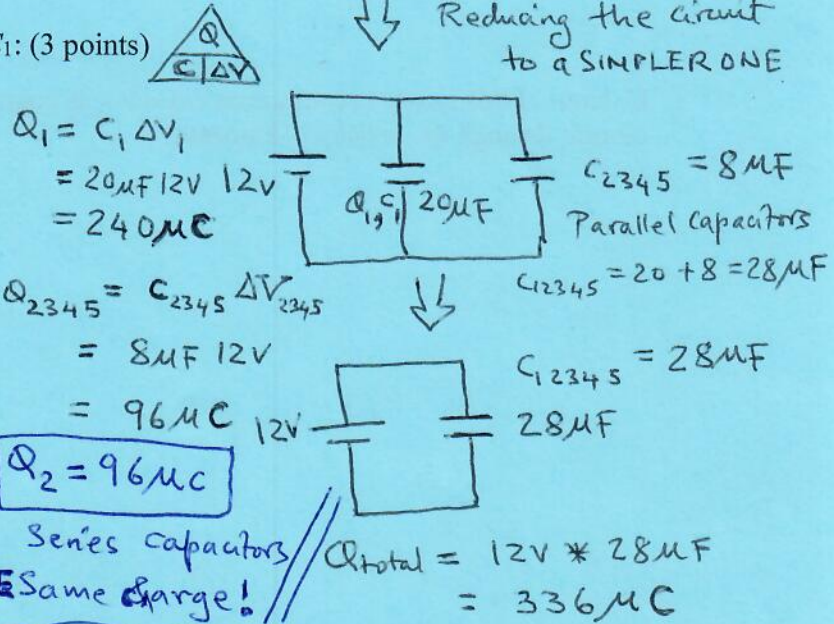 Reducing the circuit
to a SIMPLER ONE
1: (3 points)
Q
C | ΔV
Q₁ = C₁ ΔV₁
= 20μF 12V
= 240μC
12V
Q₁, C₁ 20μF
C₂₃₄₅ = 8μF
Parallel Capacitors
C₁₂₃₄₅ = 20 + 8 = 28μF
Q₂₃₄₅ = C₂₃₄₅ ΔV₂₃₄₅
= 8μF 12V
= 96μC
12V
C₁₂₃₄₅ = 28μF
28μF
Q₂ = 96μC
Series capacitors
Same charge!
Qtotal = 12V * 28μF
= 336μC